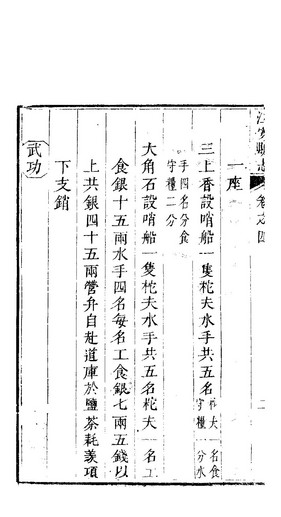 卷之四
一座
三上香設哨船一隻柁夫水手共五名柁夫一名食守糧一分水
手四名分食守糧二分
大角石設哨船一隻柁夫水手共五名柁夫一名工
食銀十五兩水手四名每名工食銀七兩五錢以
上共銀四十五兩營弁自赴道庫於鹽茶耗羨項
下支銷
武功